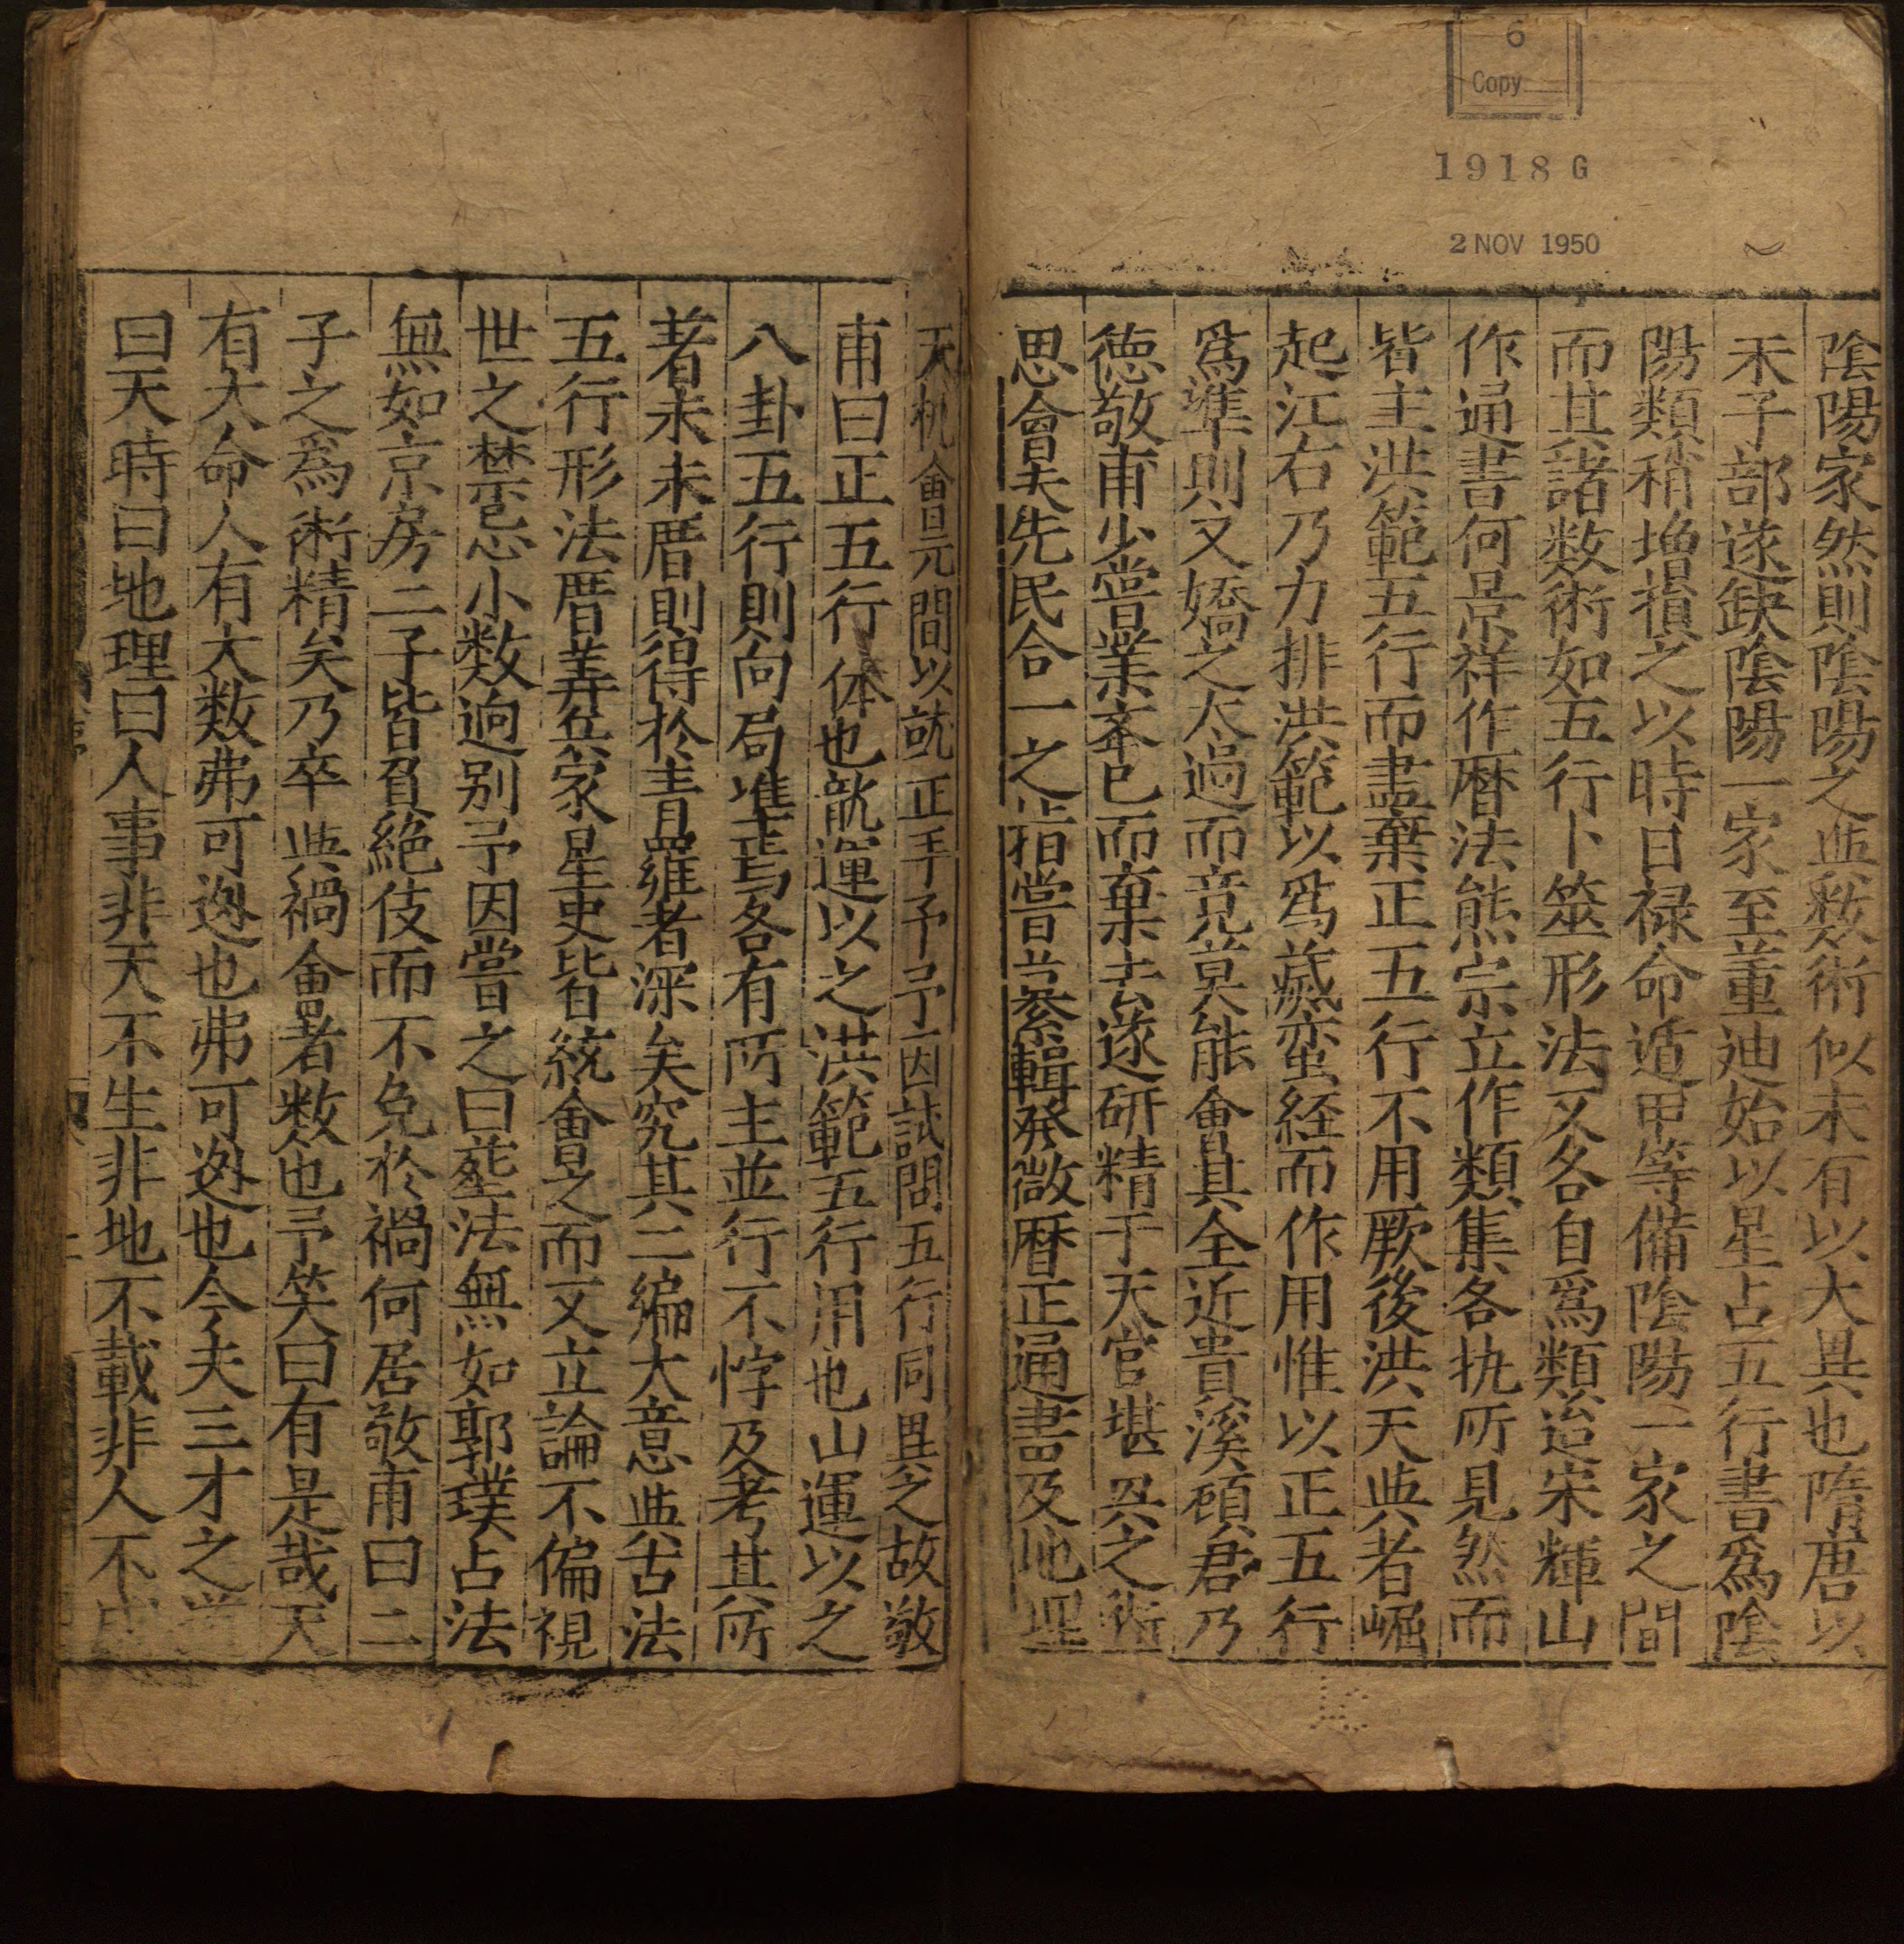 6
Copy
1918 G
2 NOV 1950
陰陽家然則陰陽之與数術似未有以大異也隋唐以
來子部遂缺陰陽一家至董迪始以星占五行書為陰
陽類稍增損之以時日禄命遁甲等備陰陽一家之間
而其諸数術如五行卜筮形法又各自爲類迨宋輝山
作通書何景祥作暦法熊宗立作類集各执所見然而
皆主洪範五行而盡棄正五行不用厥後洪天與者崛
起江右乃力排洪範以爲滅蛮経而作用惟以正五行
爲準則又嬌之太過而竟莫能會其全近貴溪碩君乃
德敬甫少嘗業亲已而棄去遂研精于天官堪兴之術
思會夫先民合一之指嘗著纂輯発微暦正通書及地理
天機會元間以就正于予予因試問五行同異之故敬
甫曰正五行体也龍運以之洪範五行用也山運以之
八卦五行則向局準焉各有所主並行不悖及考其所
著未未厝則得於青羅者深矣究其二編大意與古法
五行形法厝筭兵家星吏皆統會之而又立論不偏視
世之禁忌小数逈别予因嘗之曰塟法無如郭璞占法
無如京房二子皆負絶伎而不免於禍何居敬甫曰二
子之爲術精矣乃卒與禍會者数也予笑曰有是哉天
有大命人有大数弗可逃也弗可逃也今夫三才之
曰天時曰地理曰人事非天不生非地不載非人不